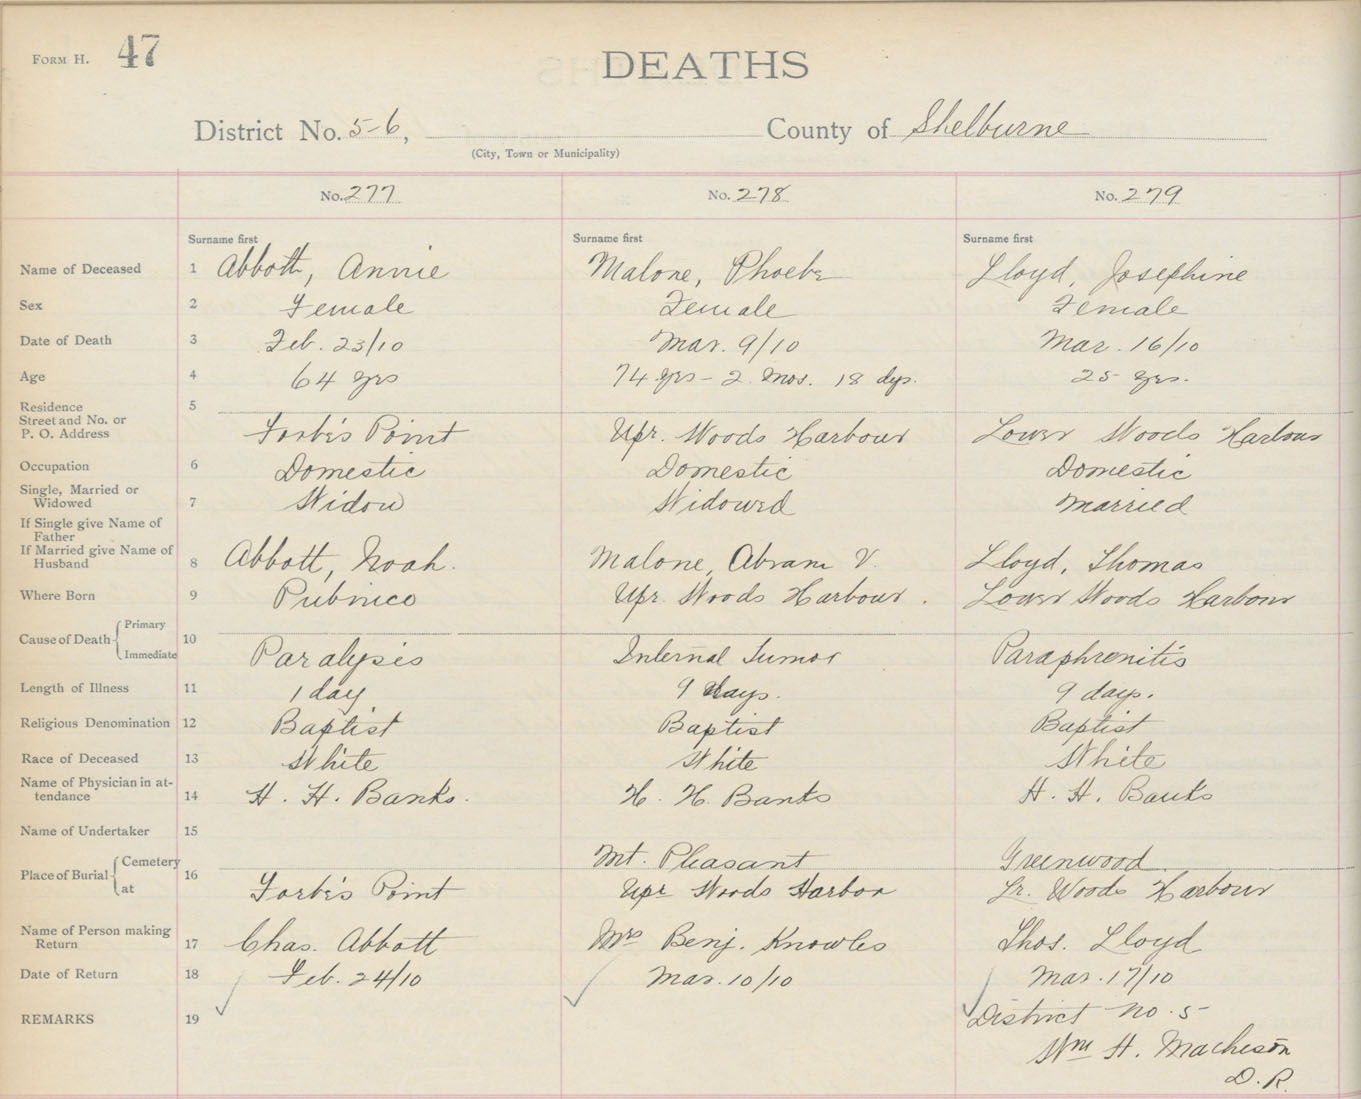 FORM H. 47
DEATHS
District No. 5-6, County of Shelburne
(City, Town or Municipality)
No. 277 No. 278 No. 279
Surname first Surname first Surname first
Name of Deceased 1 Abbott, Annie Malone, Phoebe Lloyd, Josephine
Sex 2 Female Female Female
Date of Death 3 Feb. 23/10 Mar. 9/10 Mar. 16/10
Age 4 64 yrs 74 yrs - 2 Mos. 18 dys. 25 yrs.
Residence 5
Street and No. or
P. O. Address Forbe's Point Upr. Woods Harbour Lower Woods Harbour
Occupation 6 Domestic Domestic Domestic
Single, Married or
Widowed 7 Widow Widowed Married
If Single give Name of
Father
If Married give Name of
Husband 8 Abbott, Noah. Malone, Abram V. Lloyd, Thomas
Where Born 9 Pubnico Upr. Woods Harbour. Lower Woods Harbour
Cause of Death Primary 10
Immediate Paralysis Internal Tumor Paraphrenitis
Length of Illness 11 1 day 9 days. 9 days.
Religious Denomination 12 Baptist Baptist Baptist
Race of Deceased 13 White White White
Name of Physician in at-
tendance 14 H. H. Banks. H. H. Banks H. H. Banks
Name of Undertaker 15
Place of Burial Cemetery 16 Mt. Pleasant Greenwood
at Forbe's Point Upr Woods Harbor Lr. Woods Harbour
Name of Person making
Return 17 Chas. Abbott Mrs Benj. Knowles Thos. Lloyd
Date of Return 18 Feb. 24/10 Mar. 10/10 Mar. 17/10
REMARKS 19 District No. 5
Wm H. Matheson
D. R.